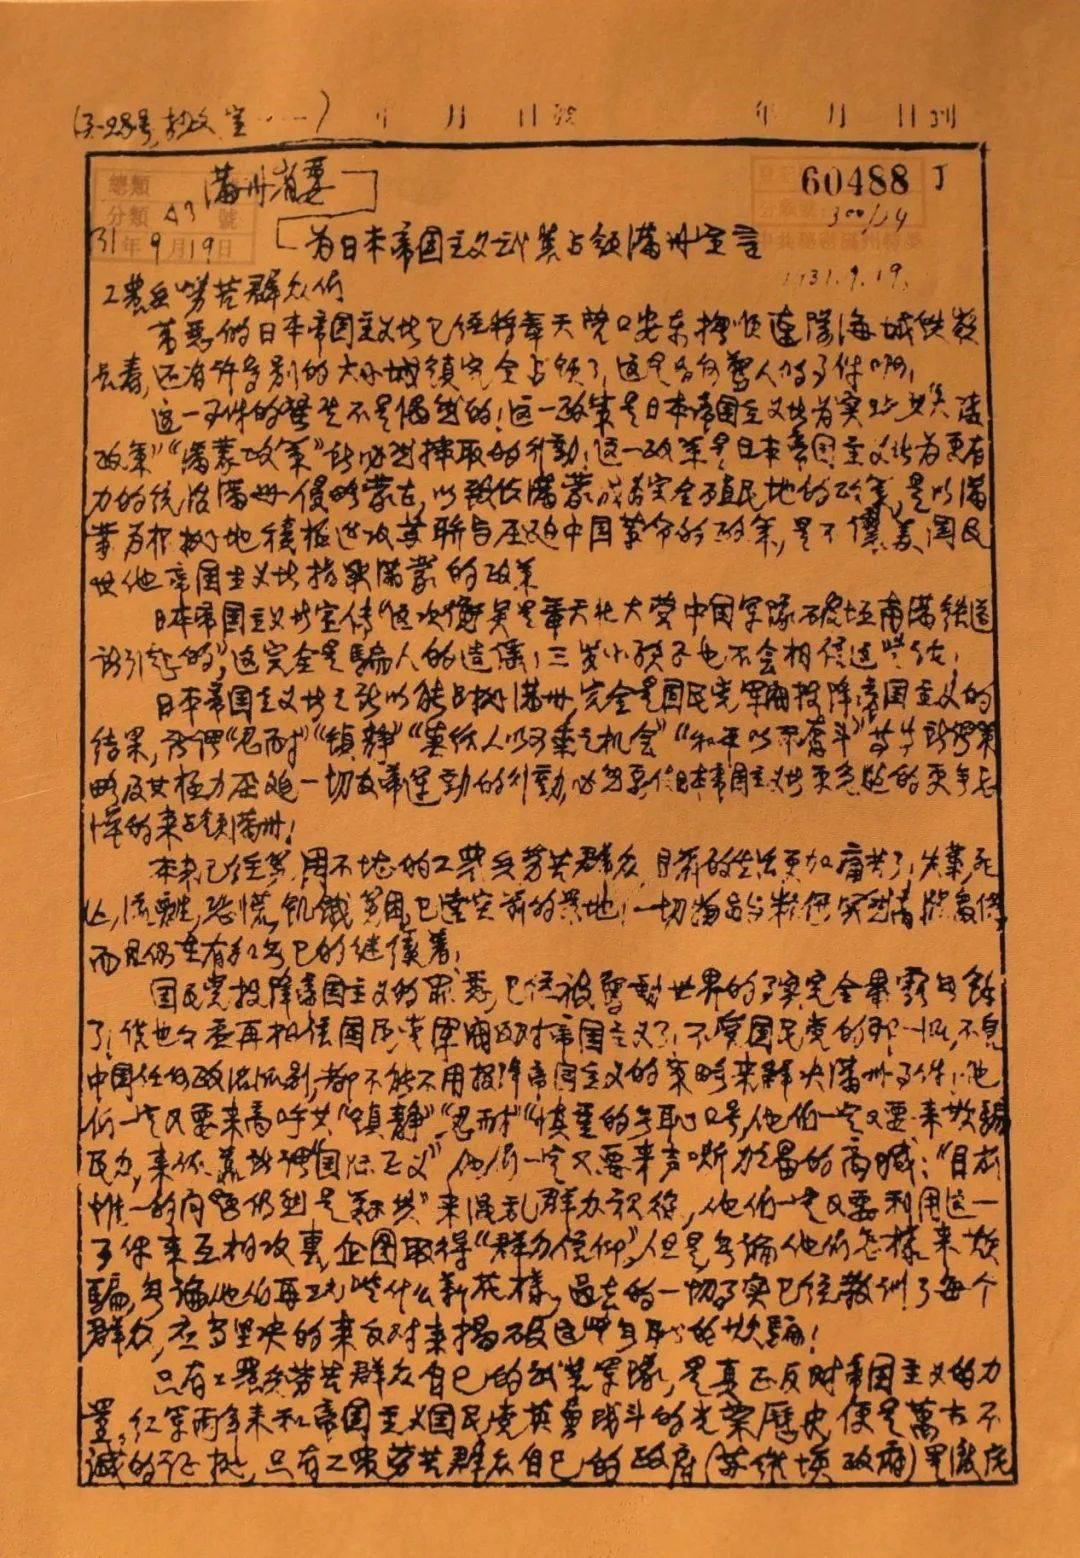 年 月 日 年 月 日到
總類 滿州省委 60488 J
分類 A3 號 300/14
31年9月19日 为日本帝国主义武装占领滿州宣言
1931.9.19.
工農兵劳苦群众们
万惡的日本帝国主义者已经将奉天营口安东撫顺辽陽海城铁嶺
長春,还有许多别的大小城镇完全占领了,这是多么驚人的事件啊!
这一事件的發生不是偶然的!这一政策是日本帝国主义者为实现其大陆
政策,“满蒙政策”所必然採取的行動!这一政策是日本帝国主义者为更有
力的统治满州侵略蒙古,以致使满蒙成为完全殖民地的政策,是以满
蒙为根据地積極进攻苏联与压迫中国革命的政策,是不讓美国及
其他帝国主义者指染满蒙的政策
日本帝国主义者宣传“这次衝突是奉天北大营中国军隊破坏南满铁道
所引起的”,这完全是騙人的造谣!三岁小孩子也不会相信这些话!
日本帝国主义者之所以能占据满州,完全是国民党军阀投降帝国主义的
结果,所谓“忍耐”“镇静”“莫给人以可乘之机会”“和平以不奮斗”等等
略及其极力压迫一切反帝运動的行動,
的来占领满州!
本来已经 的工農兵劳苦群众,目前的生活更加痛苦了,失業死
亡,流離,恐慌,飢餓 貧困,已達空前的
而且仍在有加无已的继续着!
国民党投降帝国主义的罪惡,已经被驚動世界的事实完全暴露无餘
了!谁也不要再相信国民党军阀反对帝国主义了!不管国民党的那一派,不管
中国任何政治派别,都不能不用投降帝国主义的策略来解决满州事件!他
们一定又要来高呼其“镇静”“忍耐”“慎重的无恥口号,他们一定又要来欺騙
民众,来依靠所谓“国际正义”他们一定又要来声嘶力竭的高喊:“目前
惟一的问题仍然是剿共”来混乱群众视線,他们一定又要利用这一
事件来互相攻擊,企图取得“群众信仰”,但是无論他们怎樣来欺
騙,无論他们再玩些什么新花樣,过去的一切事实已经教训了每个
群众,应当坚决的来反对来揭破这些无恥的欺騙!
只有工農兵劳苦群众自己的武装军隊,是真正反对帝国主义的力
量,红军两年来和帝国主义国民党英勇战斗的光荣歷史,便是萬古不
滅的证据,只有工農劳苦群众自己的政府(苏维埃政府)是徹底